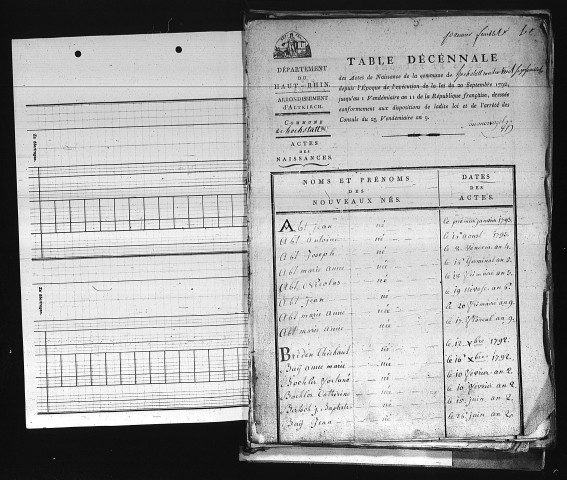 premier feuillet
TABLE DÉCENNALE
DÉPARTEMENT
DU
HAUT-RHIN.
ARRONDISSEMENT
D'ALTKIRCH.
COMMUNE
de hochstatt
ACTES
DES
NAISSANCES.
des Actes de Naissance de la commune de hochstatt
depuis l'Époque de l'exécution de la loi du 20 Septembre 1792,
jusqu'au 1 Vendémiaire an 11 de la République française, dressée
conformément aux dispositions de ladite loi et de l'arrêté des
Consuls du 25 Vendémiaire an 9.
NOMS ET PRÉNOMS
DES
NOUVEAUX NÉS.
DATES
DES
ACTES.
Abt Jean né le premier janvier 1793.
Abt Antoine né le 12 aout 1793.
Abt Joseph né le 2 Ventose an 4.
Abt marie anne née le 18 Germinal an 5.
Abt Nicolas né le 18 frimaire an 5.
Abt Jean né le 19 Nivose an 6.
Abt marie anne née le 20 frimaire an 9.
Abt marie anne née le 17 floréal an 9.
Thiebaud né le 12 Xbre 1792.
Baÿ anne marie née le 10 Xbre 1792.
né le 10 fevrier an 2.
Catherine née le 10 fevrier an 2.
J. Baptiste né le 18 juin an 2.
Baÿ Jean né le 24 juin an 2.